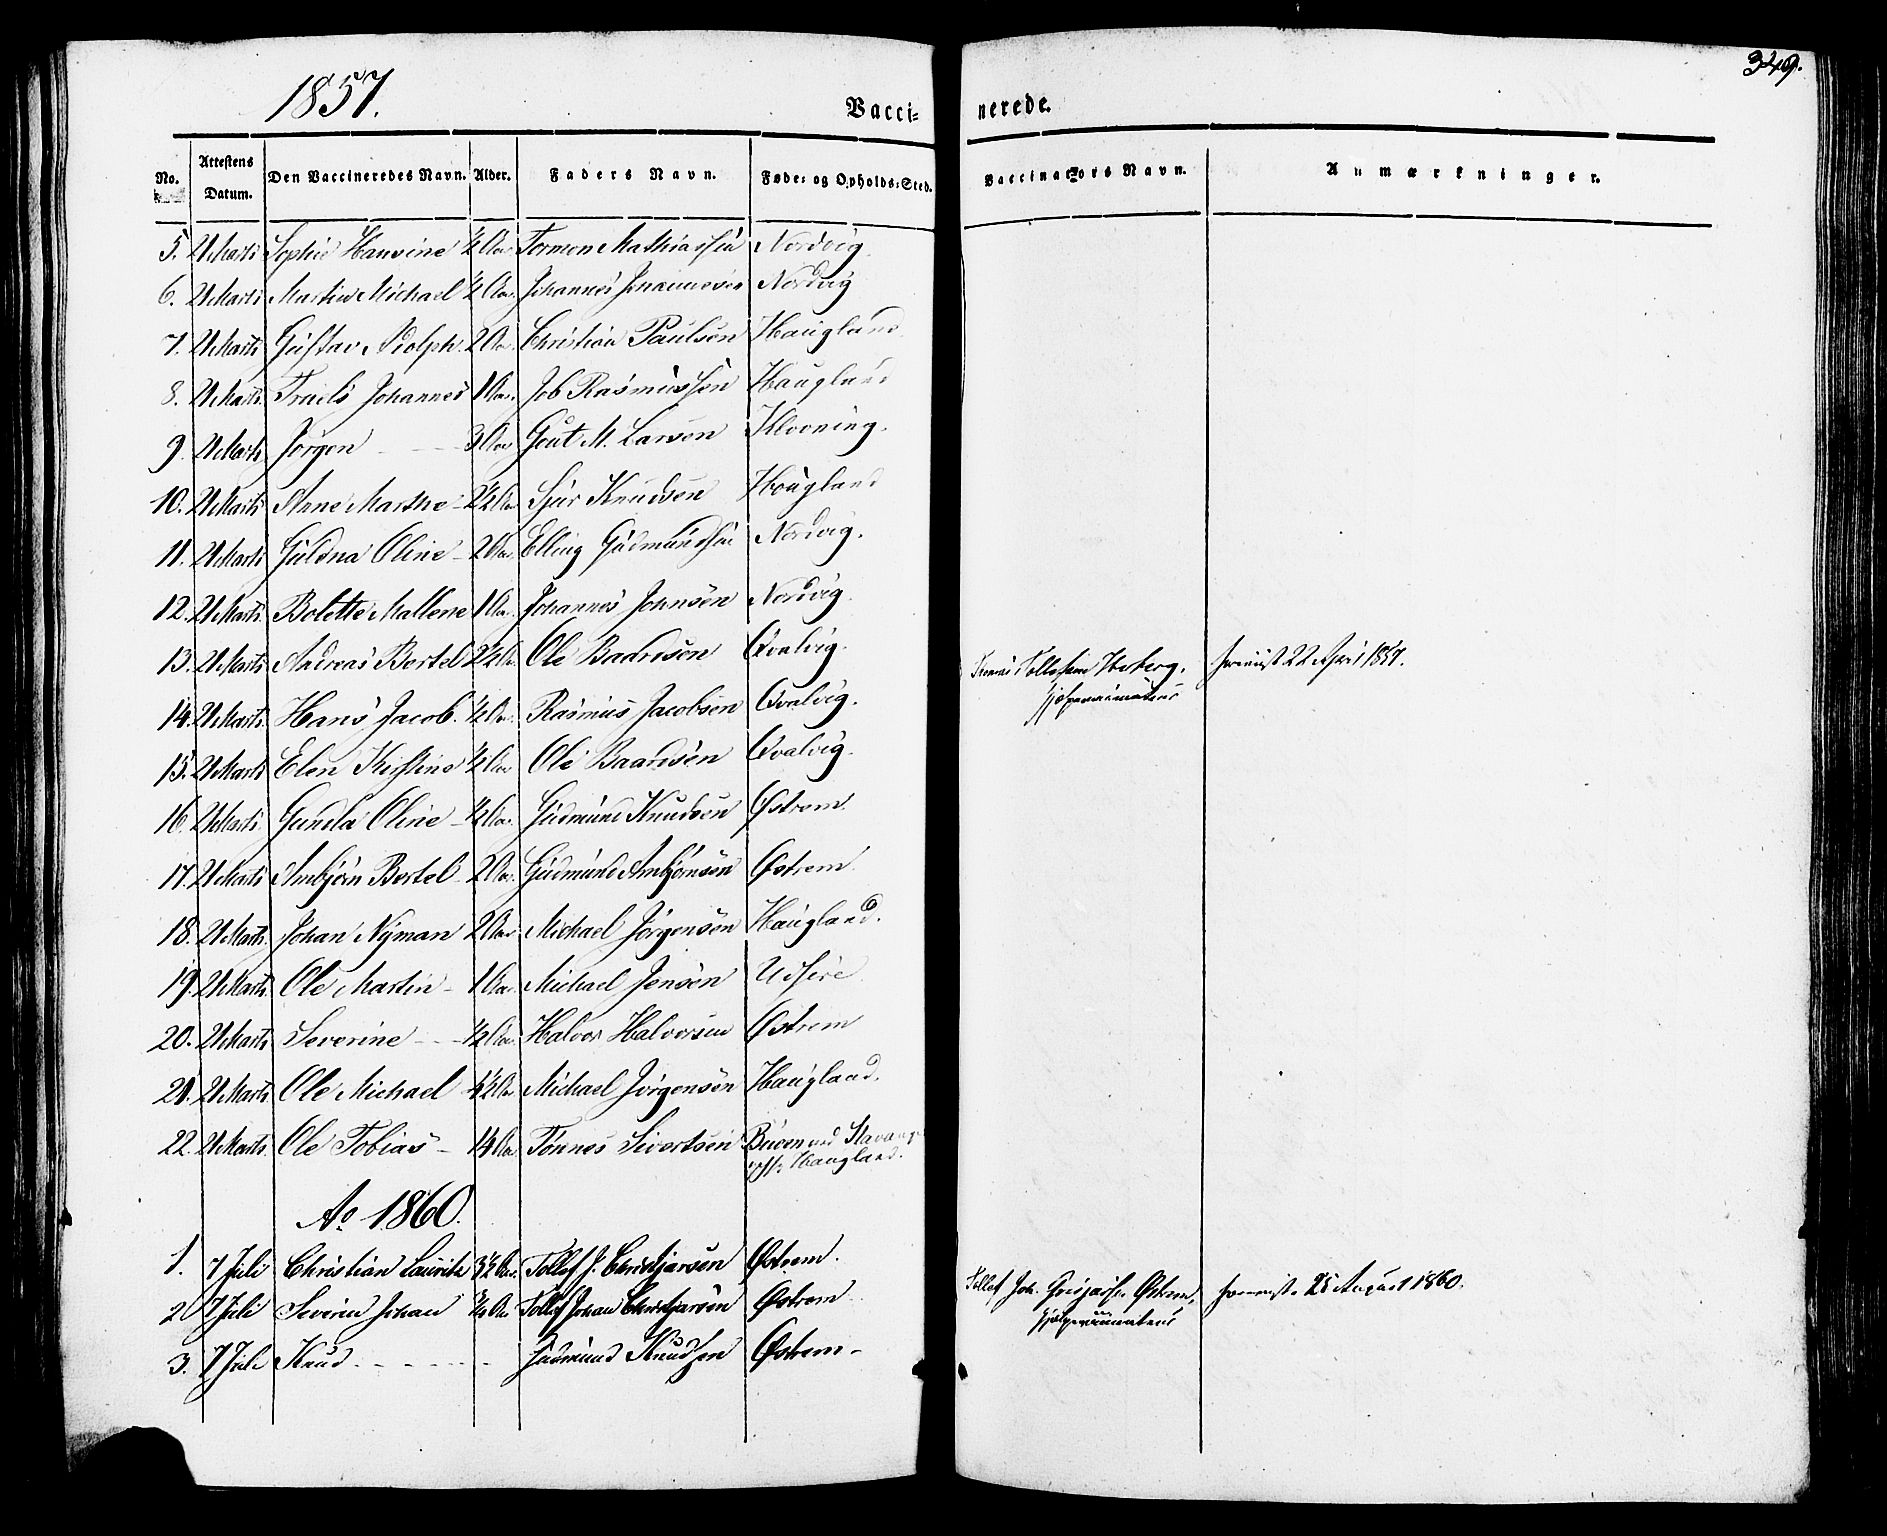 349.
1857.
Vaccinerede.
No. Attestens Datum. Den Vaccineredes Navn. Alder. Faders Navn. Føde- og Opholds-Sted. Vaccinators Navn. Anmærkninger.
5. 21 Marts Sophie Hansine ½ Aar Tormon Mathiassen Nordvig
6. 21 Marts Martin Michael ½ Aar Johannes Johannesen Nordvig
7. 21 Marts Gustav Adolph. 2 Aar. Christian Paulsen Haugland
8. 21 Marts Truels Johannes 1 Aar. Job Rasmussen Haugland
9. 21 Marts Jørgen - - - 3 Aar Gout M. Larsen Klovning.
10. 21 Marts Anne Marthe - 2½ Aar Sjur Knudsen Hougland
11. 21 Marts Guldna Oline - 2 Aar. Elling Gudmundsen Nordvig.
12. 21 Marts Bolette Mallene 1 Aar. Johannes Johnsen Nordvig.
13. 21 Marts Andreas Bertel 2½ Aar Ole Baardsen Qvalvig. Tollefsen Hoberg. 22 April 1857.
14. 21 Marts Hans Jacob. ½ Aar. Rasmus Jacobsen Qvalvig. Hjelpevaccinateur
15. 21 Marts Elen Kirstine ½ Aar Ole Baardsen Qvalvig.
16. 21 Marts Gunda Oline - ½ Aar. Gudmund Knudsen Østrem.
17. 21 Marts Ambjørn Bertel. 2 Aar. Gudmund Ambjønsen Østrem.
18. 21 Marts. Johan Nyman 2 Aar Michael Jørgensen Haugland.
19. 21 Marts Ole Martin - 1 Aar. Michael Jensen Udsire
20. 21 Marts Severine - - - ½ Aar. Halvor Halvorsen Østrem
21. 21 Marts Ole Michael - ½ Aar Michael Jørgensen Haugland.
22. 21 Marts. Ole Tobias - ¼ Aar Tønnes Sivertsen Buøen ved Stavanger
Haugland.
Ao 1860.
1. 7 Juli Christian Lauritz 3½ Aar. Tollef J. Christjansen Østrem. Tollef Joh. Østrem, 25 August 1860.
2 7 Juli Severin Johan ¾ Aar Tollef Johan Christjansen Østrem Hjelpevaccinateur
3. 7 Juli Knud - - - - - - Gudmund Knudsen Østrem -